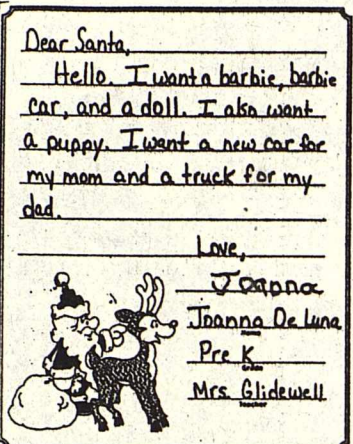 Dear Santa,
Hello. I want a barbie, barbie
car, and a doll. I also want
a puppy. I want a new car for
my mom and a truck for my
dad.
Love,
Joanna
Joanna De Luna
Name
Pre K
Grade
Mrs. Glidewell
Teacher